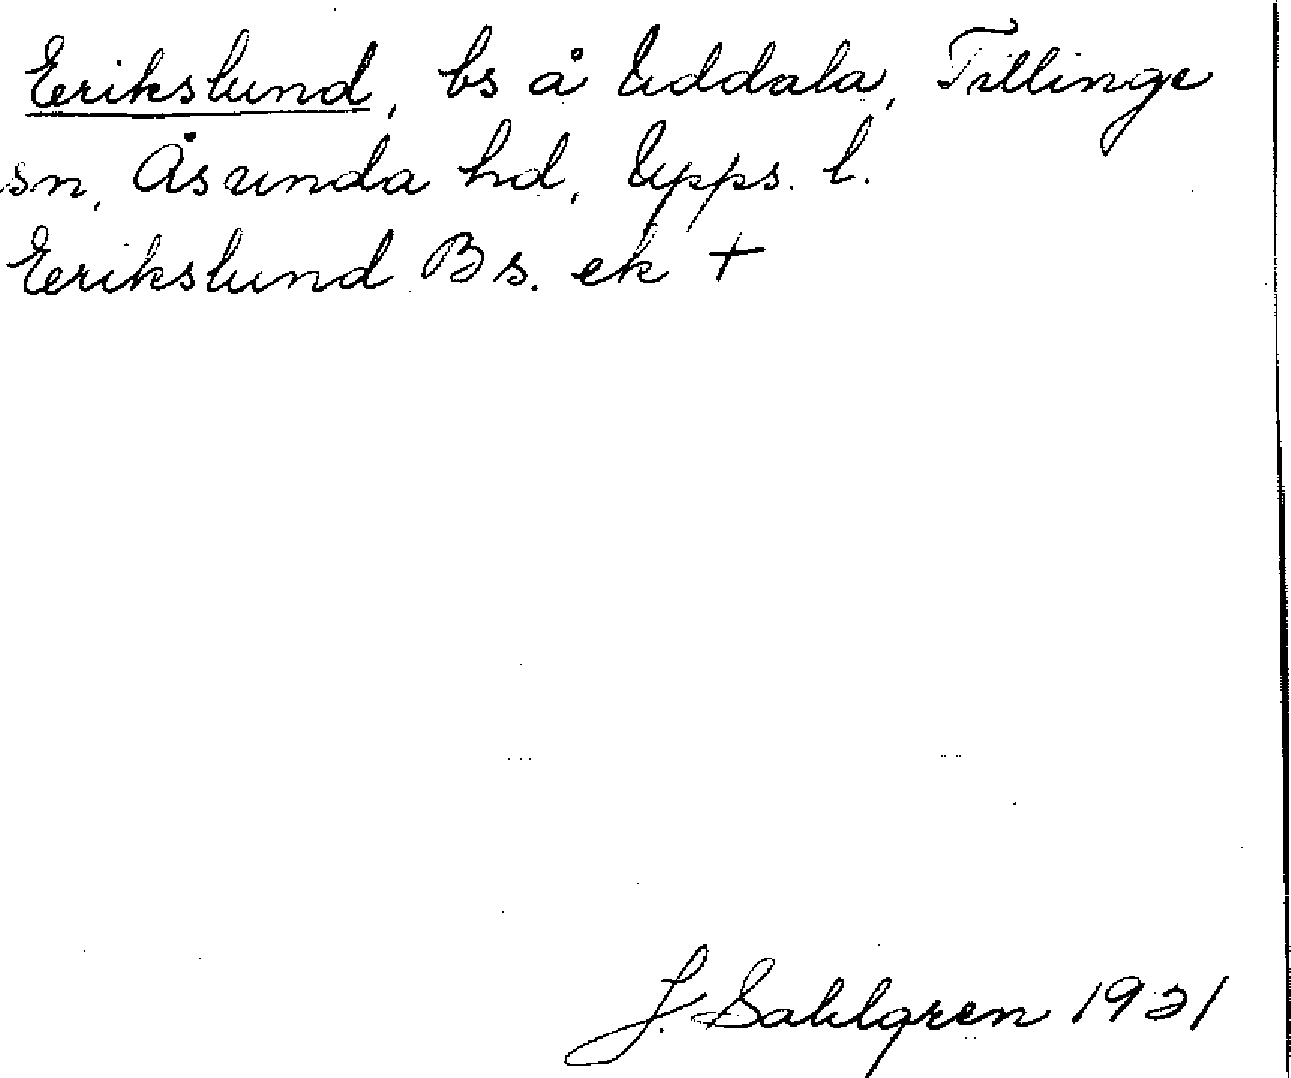 Erikslund, bs å Uddala, Tillinge
sn, Åsunda hd, Upps. l.
Erikslund Bs. ek +
J. Sahlgren 1931